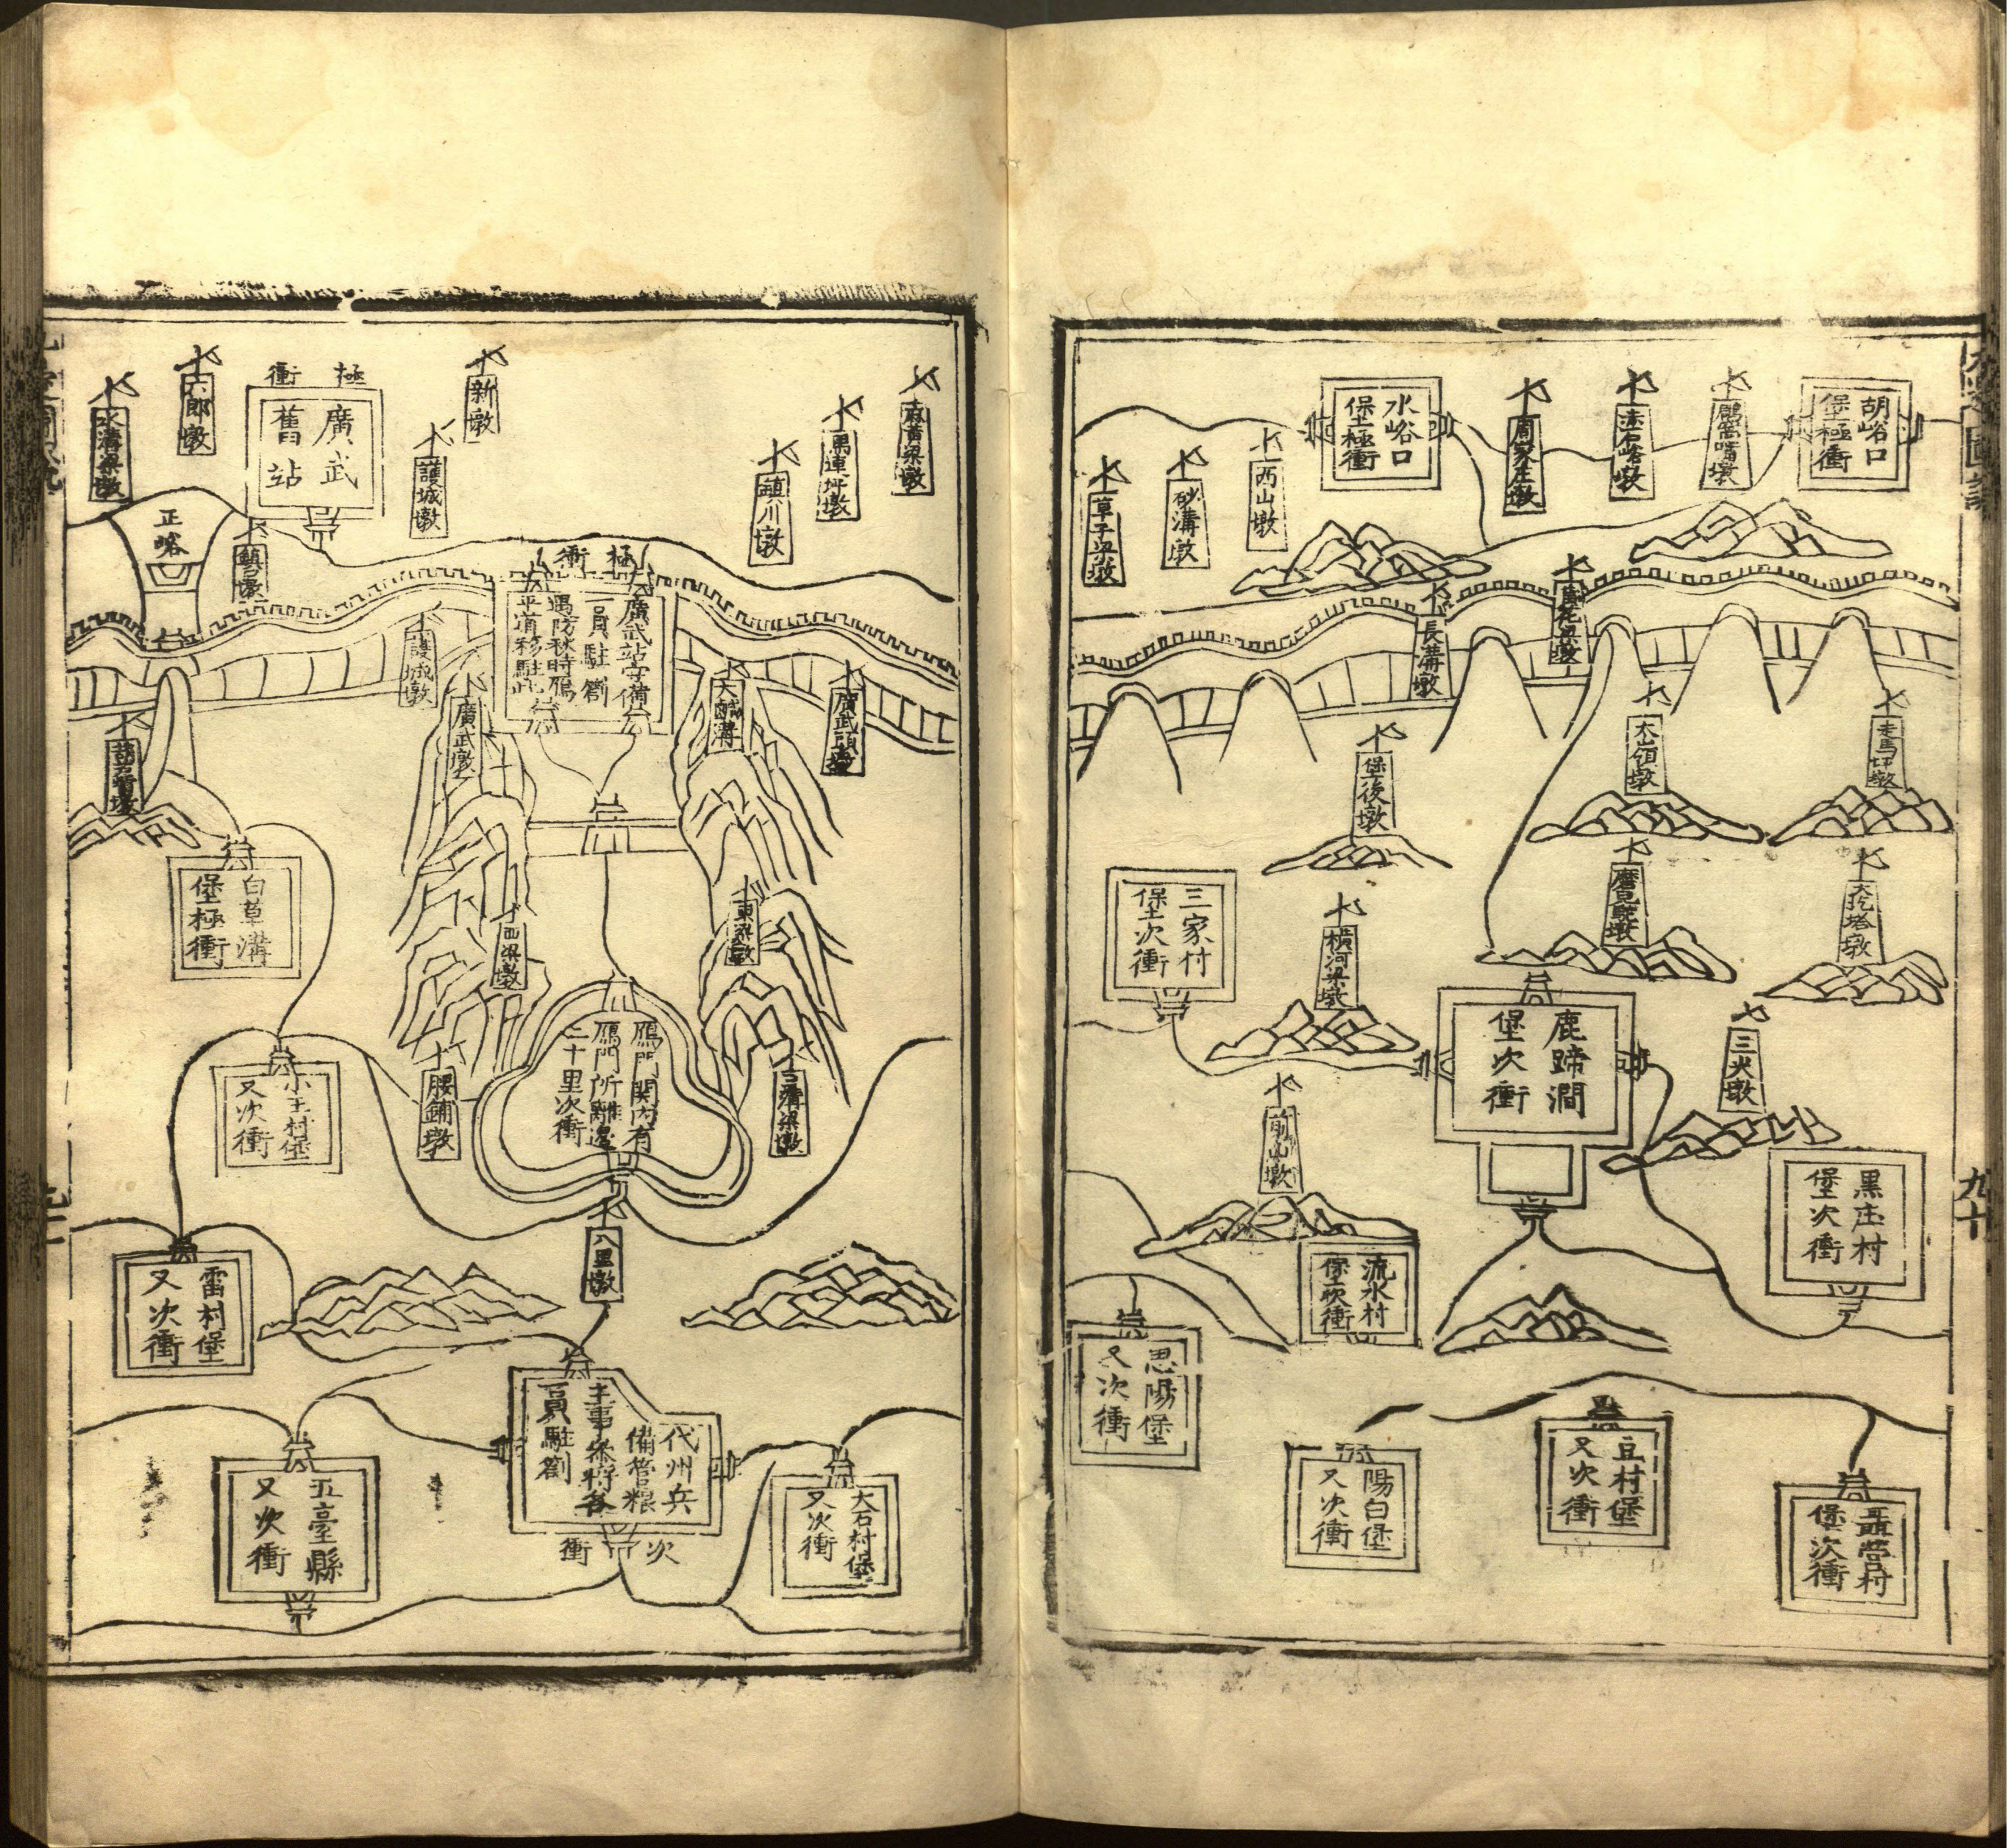 胡峪口
堡極衝
赤石峪墩
周家庄墩
水峪口
堡極衝
西山墩
砂溝墩
草子梁墩
長溝墩
走馬坪墩
大嶺墩
堡後墩
大挖塔墩
三家村
堡次衝
橫河梁墩
鹿蹄澗
堡次衝
三火墩
前山墩
黑庄村
堡次衝
流水村
堡次衝
思陽堡
又次衝
豆村堡
又次衝
陽白堡
又次衝
聶營村
堡次衝
九十
麻黃梁墩
黑連坪墩
鎮川墩
新墩
護城墩
極衝
廣武
舊站
六郎墩
水溝梁墩
正峪
極衝
廣武站守備
一員駐劄
遇防秋時鴈
平道移駐此
護城墩
廣武墩
大鹹溝
廣武頭墩
白草溝
堡極衝
西梁墩
東梁墩
鴈門関內有
鴈門所離邊
二十里次衝
小王村堡
又次衝
腰鋪墩
八里墩
雷村堡
又次衝
代州兵
備管粮
主事叅將各
一員駐劄
次衝
大石村堡
又次衝
五臺縣
又次衝